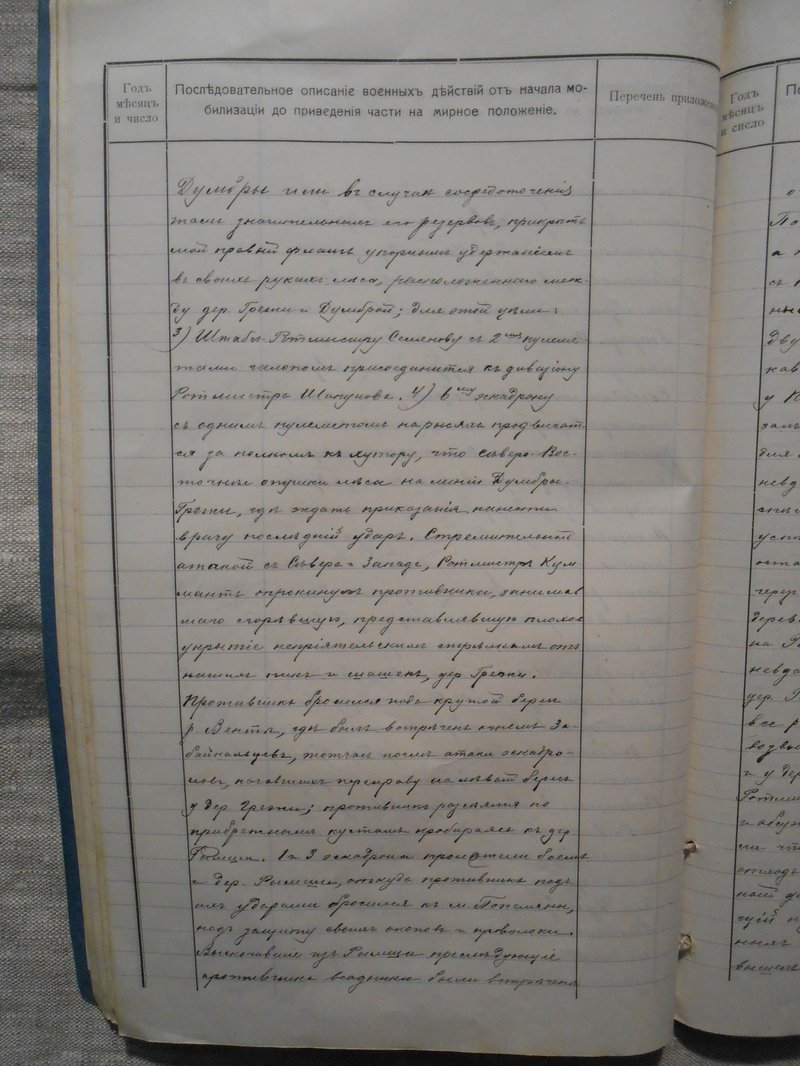 Годъ
мѣсяцъ
и число
Послѣдовательное описаніе военныхъ дѣйствій отъ начала мо-
билизаціи до приведенія части на мирное положеніе.
Перечень приложен
Думбры или въ случаѣ сосредоточенія
тамъ значительныхъ его резервовъ, прикрыть
мой правый флангъ упорнымъ удержаніемъ
въ своихъ рукахъ лѣса, расположеннаго меж-
ду дер. Грежи и Думброй; для этой цѣли:
3) Штабсъ-Ротмистру Семянову съ 2мя пулеме
тами галопомъ присоединится къ дивизіону
Ротмистра Шапунова. 4) 6му эскадрону
съ однимъ пулеметомъ на рысяхъ продвигат
ся за полкомъ къ хутору, что Сѣверо-Вос-
точнѣе опушки лѣса на линіи Думбры-
Грежи, гдѣ ждать приказанія нанести
врагу послѣдній ударъ. Стремительной
атакой съ Сѣверо-Запада, Ротмистръ Кум
мантъ опрокинулъ противника, занимав
шаго сгорѣвшую, представлявшую плохое
укрытіе непріятельскимъ стрѣлкамъ отъ
нашихъ пикъ и шашекъ, дер. Грежи.
Противникъ бросился подъ крутой берегъ
р. Вента, гдѣ былъ встрѣченъ огнемъ За-
байкальцевъ, тотчасъ послѣ атаки эскадро-
новъ, начавшихъ переправу на лѣвый берегъ
у дер. Грежи; противникъ разсѣялся по
прибрежнымъ кустамъ пробираясь къ дер.
Рымши. 1 и 3 эскадроны пролетѣли
и дер. Рымши, откуда противникъ подъ
ихъ ударами бросился къ м. Попеляны,
подъ защиту своихъ окоповъ и проволоки.
Выскочившіе изъ Рымши преслѣдующіе
противника всадники были встрѣчены
Годъ
мѣсяцъ
и число